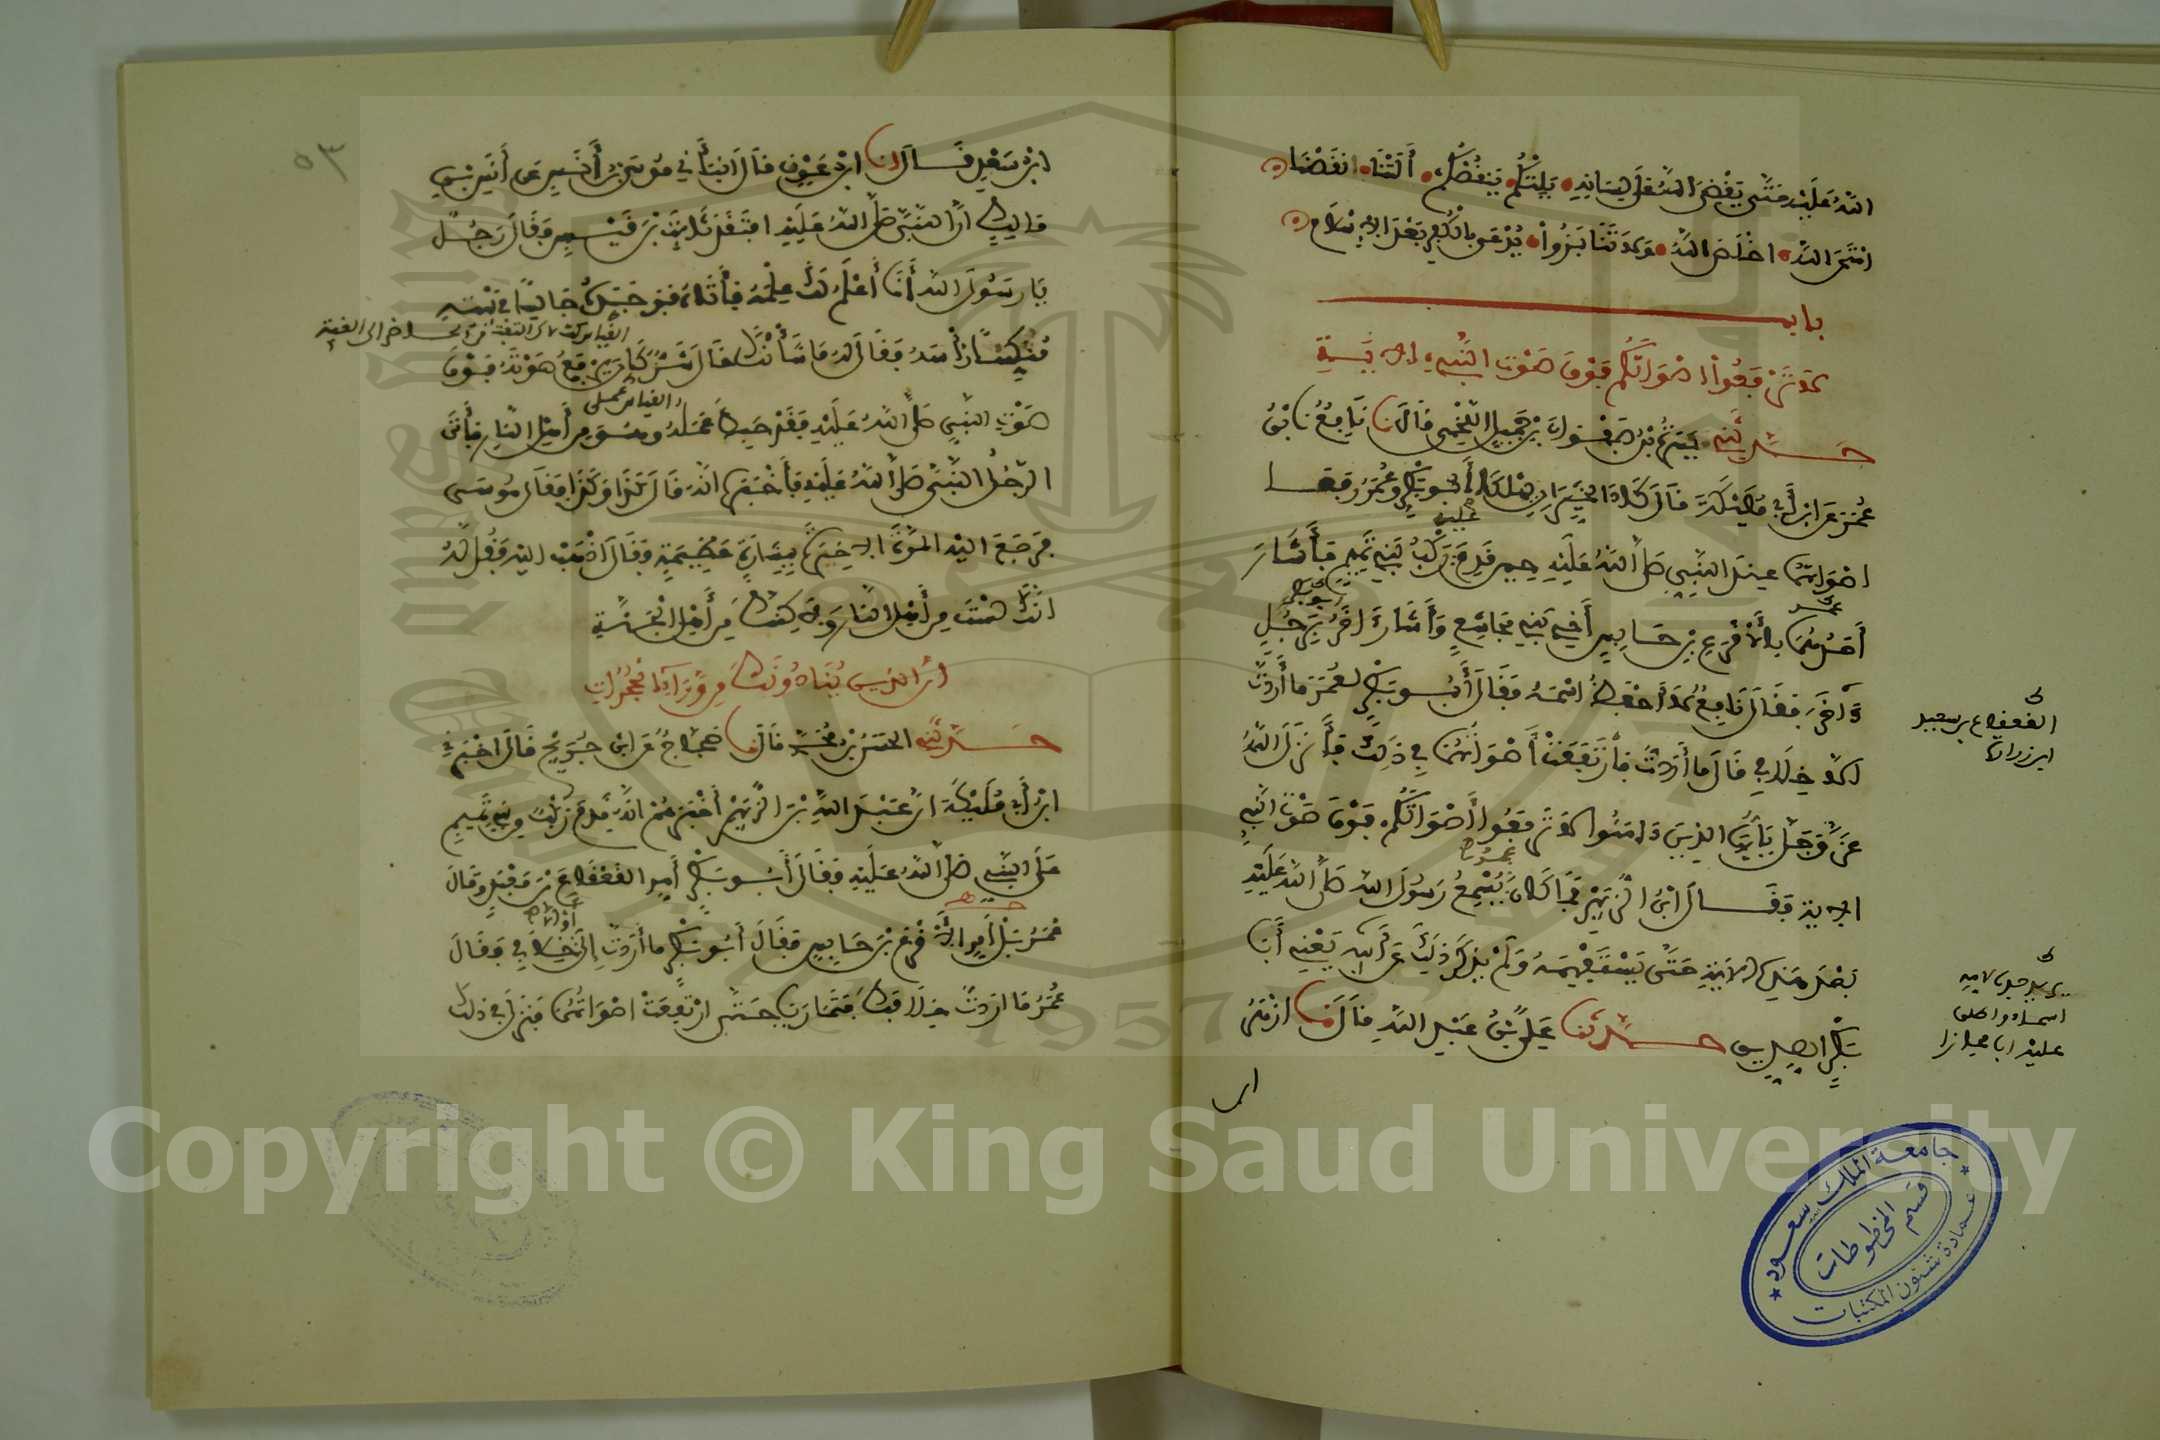 الله عليه حتى يقضى الله على لسانه يلتكم ينقصكم ألتنا نقصنا
امتحن الله اخلص الله ولا تنابزوا يدعى بالكفر بعد الإسلام
باب
لا ترفعوا أصواتكم فوق صوت النبي الآية
حدثني يسرة بن صفوان بن جميل اللخمي قال نا نافع بن
عمر عن ابن أبي مليكة قال كاد الخيران يهلكا أبو بكر وعمر رفعا
أصواتهما عند النبي صلى الله عليه حين قدم عليه ركب بني تميم فأشار
أحدهما بالأقرع بن حابس أخي بني مجاشع وأشار الآخر برجل
عمر
أبو بكر
ءاخر فقال نافع لا أحفظ اسمه فقال أبو بكر لعمر ما أردت
القعقاع بن سعيد
ابن زرارة
إلا خلافي قال ما أردت فارتفعت أصواتهما في ذلك فأنزل الله
عز وجل يأيها الذين ءامنوا لا ترفعوا أصواتكم فوق صوت النبي
الآية فقال ابن الزبير فما كان عمر يسمع رسول الله صلى الله عليه
بعد هذه الآية حتى يستفهمه ولم يذكر ذلك عن أبيه يعني أبا
بكر الصديق حدثنا علي بن عبد الله قال نا أزهر
اسماء
ابن
٥٣
ابن سعد قال انا ابن عون قال أنبأني موسى بن أنس عن أنس بن
مالك أن النبي صلى الله عليه افتقد ثابت بن قيس فقال رجل
يا رسول الله أنا أعلم لك علمه فأتاه فوجده جالسا في بيته
منكسا رأسه فقال له ما شأنك فقال شر كان يرفع صوته فوق
صوت النبي صلى الله عليه فقد حبط عمله وهو من أهل النار فأتى
القياس عملي
الرجل النبي صلى الله عليه فأخبره أنه قال كذا وكذا فقال موسى
فرجع إليه المرة الآخرة ببشارة عظيمة فقال اذهب إليه فقل له
إنك لست من أهل النار ولكنك من أهل الجنة
إن الذين ينادونك من وراء الحجرات
حدثني الحسن بن محمد قال نا حجاج عن ابن جريج قال أخبرني
ابن أبي مليكة أن عبد الله بن الزبير أخبرهم أنه قدم ركب من بني تميم
على النبي صلى الله عليه فقال أبو بكر أمر القعقاع بن معبد وقال
عمر بل أمر الأقرع بن حابس فقال أبو بكر ما أردت إلى خلافي فقال
أو إلا
عمر ما أردت خلافك فتماريا حتى ارتفعت أصواتهما فنزل في ذلك
جامعة الملك سعود
قسم المخطوطات
عمادة شئون المكتبات
1957
Copyright © King Saud University